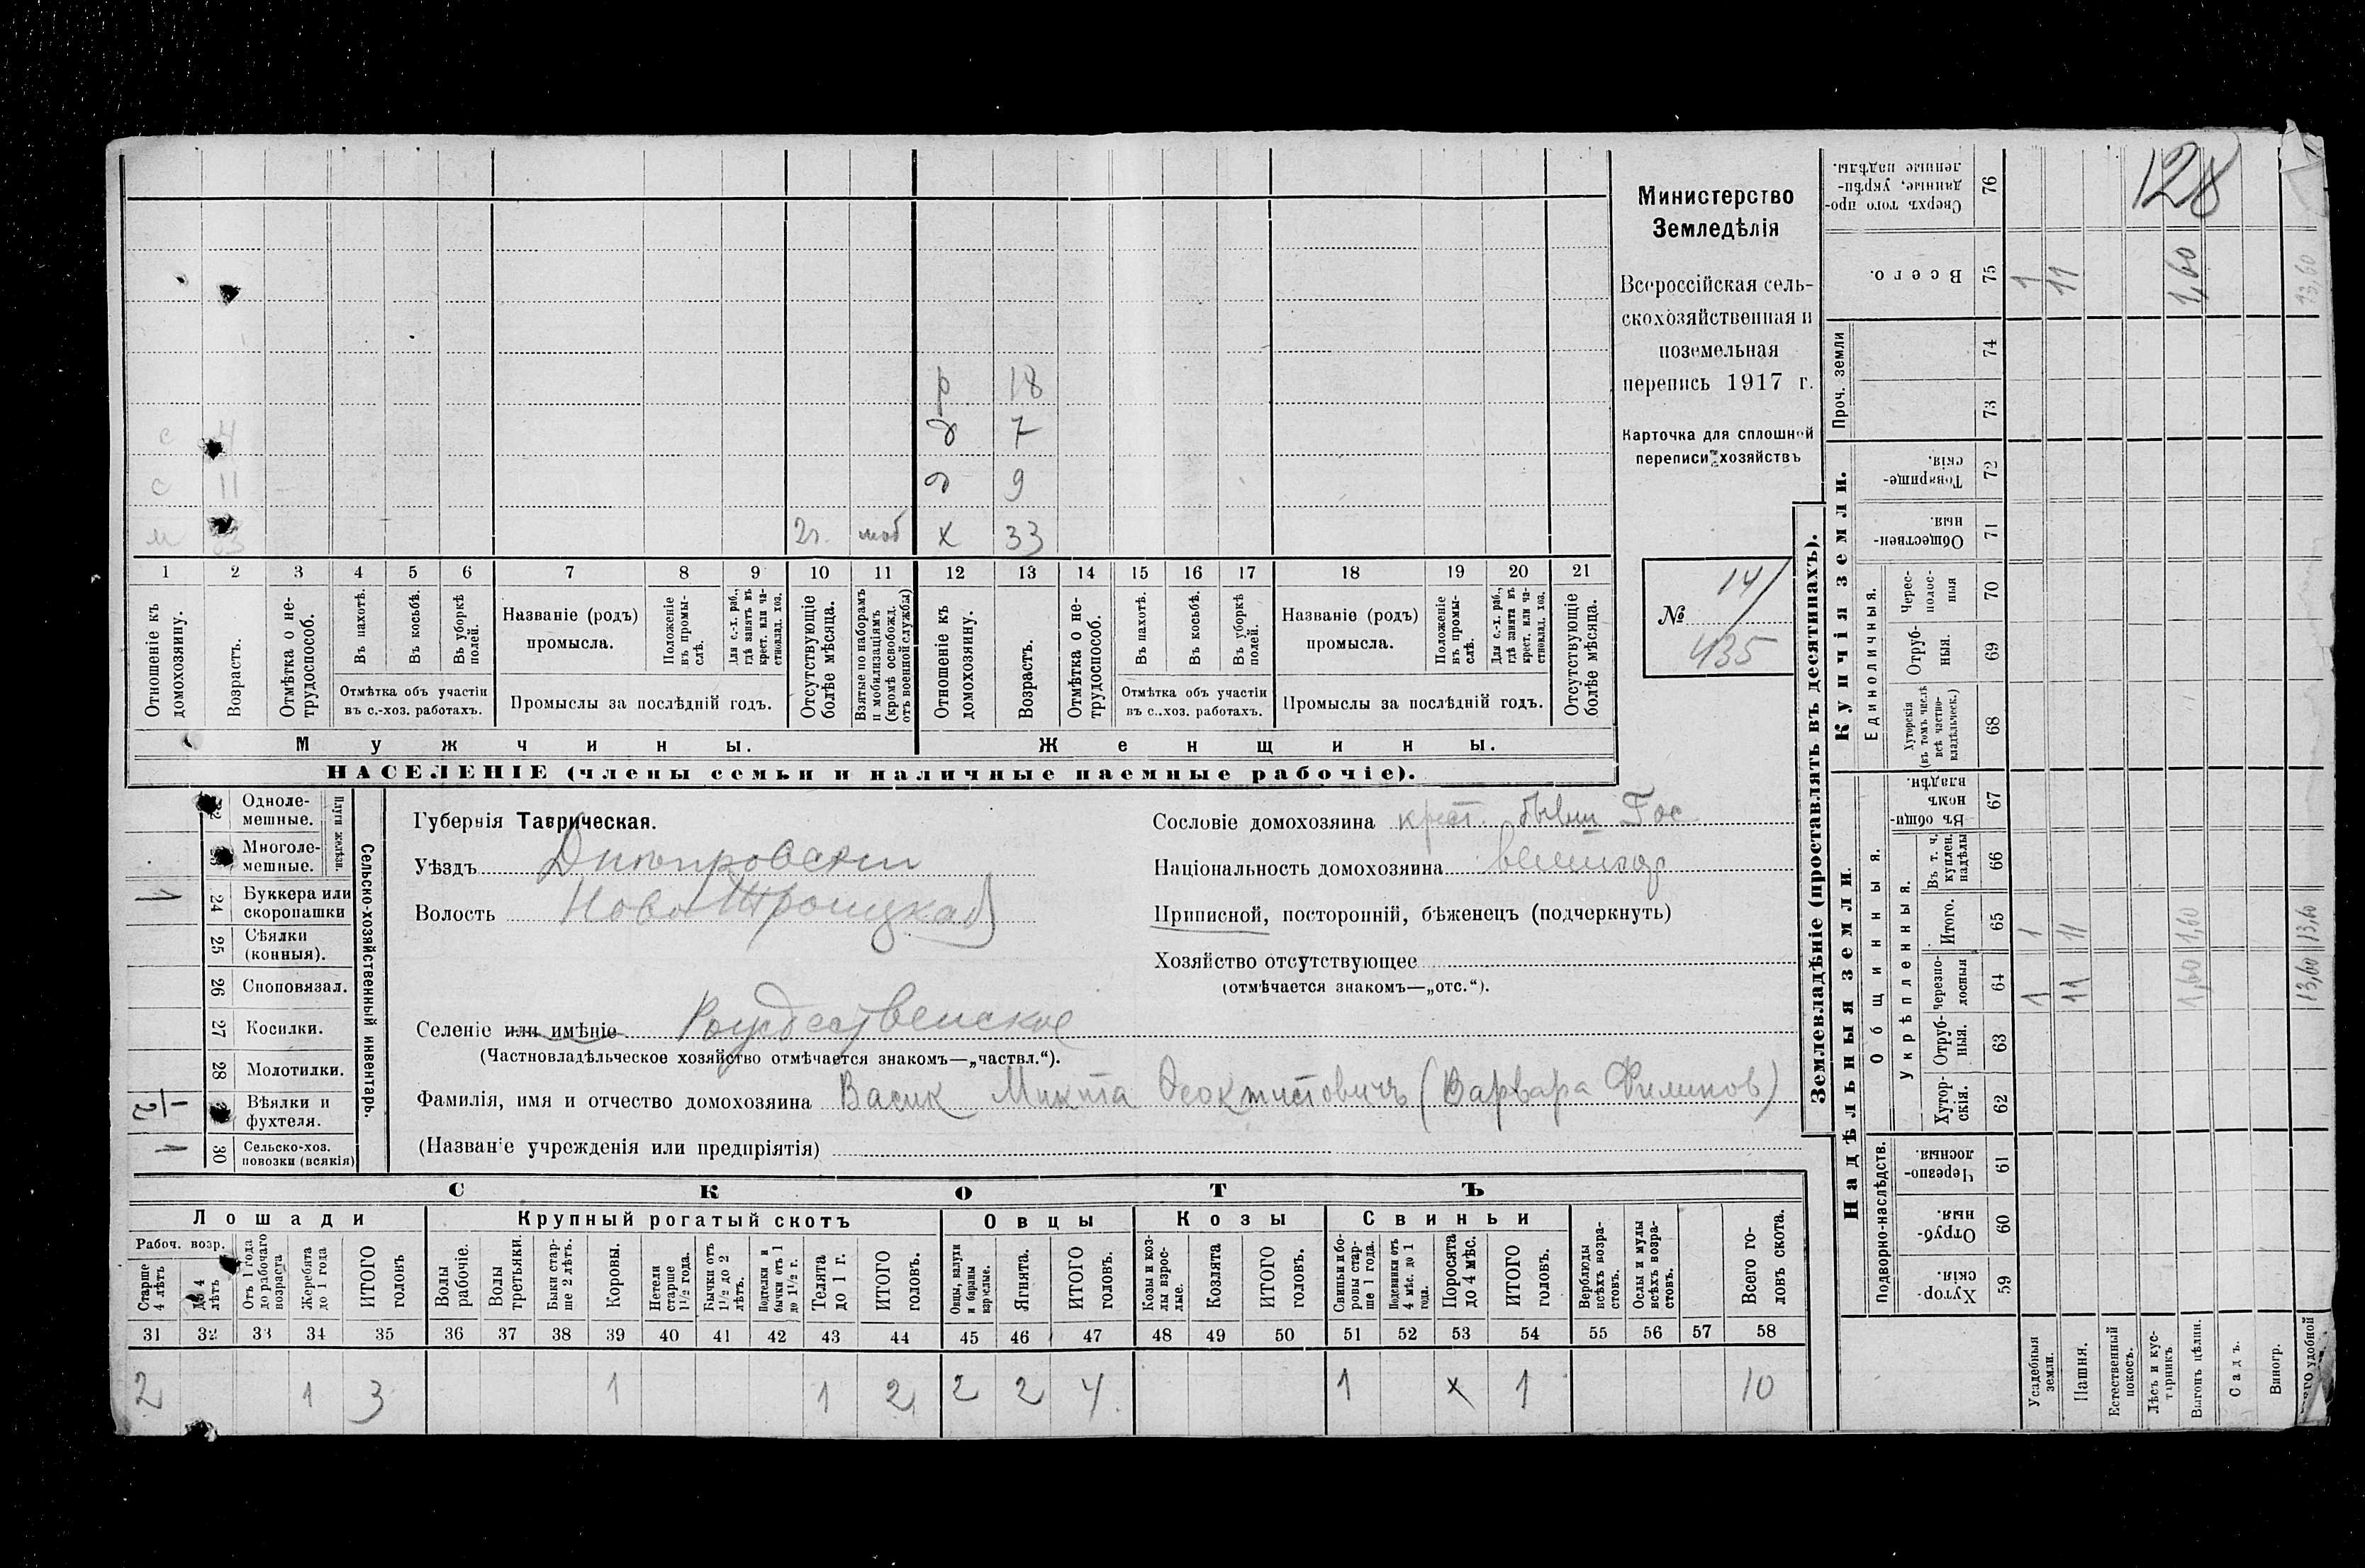 128
Министерство
Земледѣлія
Всероссійская сель-
скохозяйственная и
поземельная
перепись 1917 г.
Карточка для сплошной
переписи хозяйствъ
№ 14/
435
р 18
д 7
с 11 д 9
м 33 2г. моб х 33
1 2 3 4 5 6 7 8 9 10 11 12 13 14 15 16 17 18 19 20 21
Отношеніе къ домохозяину.
Возрастъ.
Отмѣтка о не-трудоспособ.
Въ пахотѣ.
Въ косьбѣ.
Въ уборкѣ полей.
Отмѣтка объ участіи въ с.-хоз. работахъ.
Названіе (родъ) промысла.
Положеніе въ промы-слѣ.
Для с.-х. раб., гдѣ занятъ въ крест. или ча-стновлад. хоз.
Промыслы за послѣдній годъ.
Отсутствующіе болѣе мѣсяца.
Взятые по наборамъ и мобилизаціямъ (кромѣ освобожд. отъ военной службы)
Отношеніе къ домохозяину.
Возрастъ.
Отмѣтка о не-трудоспособ.
Въ пахотѣ.
Въ косьбѣ.
Въ уборкѣ полей.
Отмѣтка объ участіи въ с.-хоз. работахъ.
Названіе (родъ) промысла.
Положеніе въ промы-слѣ.
Для с.-х. раб., гдѣ занята въ крест. или ча-стновлад. хоз.
Промыслы за послѣдній годъ.
Отсутствующіе болѣе мѣсяца.
Мужчины.
Женщины.
НАСЕЛЕНІЕ (члены семьи и наличные наемные рабочіе).
Сельско-хозяйственный инвентарь.
Плуги желѣзн.
Одноле-мешные.
Многоле-мешные.
24 Буккера или скоропашки 1
25 Сѣялки (конныя).
26 Сноповязал.
27 Косилки.
28 Молотилки.
Вѣялки и фухтеля. 1/2
30 Сельско-хоз. повозки (всякія) 1
Губернія Таврическая.
Уѣздъ Днѣпровскій
Волость Ново Троицкая
Селеніе или имѣніе Рождественское
(Частновладѣльческое хозяйство отмѣчается знакомъ—„частвл.“).
Фамилія, имя и отчество домохозяина Васик Микита Феоктистовичъ (Варвара Филипов)
(Названіе учрежденія или предпріятія)
Сословіе домохозяина крест. бывш Гос
Національность домохозяина великор
Приписной, посторонній, бѣженецъ (подчеркнуть)
Хозяйство отсутствующее
(отмѣчается знакомъ—„отс.“).
СКОТЪ
Лошади
Рабоч. возр.
Старше 4 лѣтъ
До 4 лѣтъ
Отъ 1 года до рабочаго возраста
Жеребята до 1 года
ИТОГО головъ
Крупный рогатый скотъ
Волы рабочіе.
Волы третьяки.
Быки стар-ше 2 лѣтъ.
Коровы.
Нетели старше 1½ года.
Бычки отъ 1½ до 2 лѣтъ.
Подтелки и бычки отъ 1 до 1½ г.
Телята до 1 г.
ИТОГО головъ.
Овцы
Овцы, валухи и бараны взрослые.
Ягнята.
ИТОГО головъ.
Козы
Козы и коз-лы взрос-лые.
Козлята
ИТОГО головъ.
Свиньи
Свиньи и бо-ровы стар-ше 1 года.
Подсвинки отъ 4 мѣс. до 1 года.
Поросята до 4 мѣс.
ИТОГО головъ.
Верблюды всѣхъ возра-стовъ.
Ослы и мулы всѣхъ возра-стовъ.
Всего го-ловъ скота.
31 32 33 34 35 36 37 38 39 40 41 42 43 44 45 46 47 48 49 50 51 52 53 54 55 56 57 58
2 1 3 1 1 2 2 2 4 1 х 1 10
Землевладѣніе (проставлять въ десятинахъ).
Надѣльныя земли.
Купчія земли.
Проч. земли
Подворно-наслѣдств.
Общинныя.
Укрѣпленныя.
Единоличныя.
Хутор-скія. 59
Отруб-ныя. 60
Черезпо-лосныя. 61
Хутор-скія. 62
Отруб-ныя. 63
Черезпо-лосныя 64
Итого. 65
Въ т. ч. куплен. надѣлы 66
Въ общин-номъ владѣн. 67
Хуторскія (въ томъ числѣ всѣ частно-владѣльческ.) 68
Отруб-ныя. 69
Черес-полос-ныя 70
Обществен-ныя. 71
Товарище-скія. 72
73
74
Всего. 75
Сверхъ того про-данные, укрѣп-ленные надѣлы. 76
Усадебныя земли. 1 1 1
Пашня. 11 11 11
Естественный покосъ.
Лѣсъ и кус-тарникъ.
Выгонъ цѣлин. 1,60 1,60 1,60
Садъ.
Виногр.
удобной 13,60 13,60 13,60